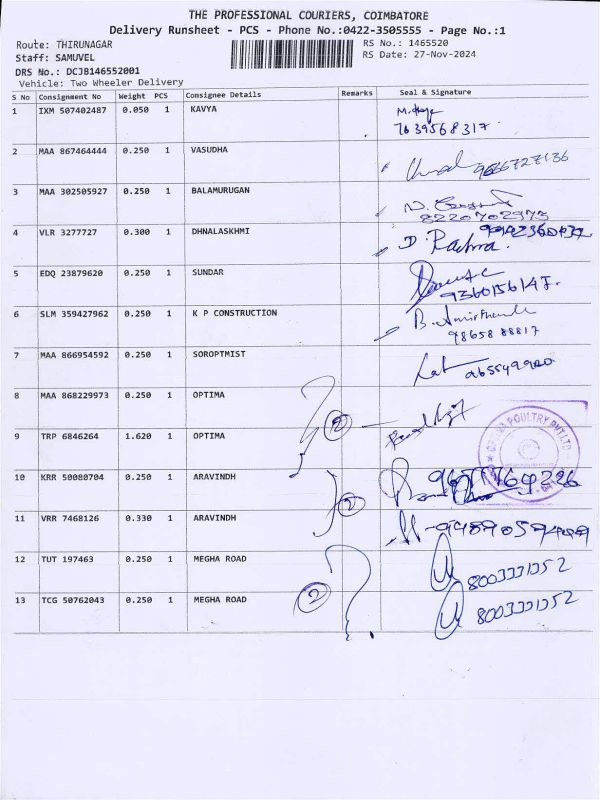 THE PROFESSIONAL COURIERS, COIMBATORE
Delivery Runsheet - PCS - Phone No.:0422-3505555 - Page No.:1
Route: THIRUNAGAR RS No.: 1465520
Staff: SAMUVEL RS Date: 27-Nov-2024
DRS No.: DCJB146552001
Vehicle: Two Wheeler Delivery
S No Consignment No Weight PCS Consignee Details Remarks Seal & Signature
1 IXM 507402487 0.050 1 KAVYA
7639568317
2 MAA 867464444 0.250 1 VASUDHA
3 MAA 302505927 0.250 1 BALAMURUGAN
8220702973
4 VLR 3277727 0.300 1 DHNALASKHMI D. Padma.
5 EDQ 23879620 0.250 1 SUNDAR
9360156147.
6 SLM 359427962 0.250 1 K P CONSTRUCTION
98658 88817
7 MAA 866954592 0.250 1 SOROPTMIST
8 MAA 868229973 0.250 1 OPTIMA
2
9 TRP 6846264 1.620 1 OPTIMA
POULTRY PVT LTD
10 KRR 50080704 0.250 1 ARAVINDH
2
11 VRR 7468126 0.330 1 ARAVINDH
12 TUT 197463 0.250 1 MEGHA ROAD 8003331352
13 TCG 50762043 0.250 1 MEGHA ROAD 2 8003331352